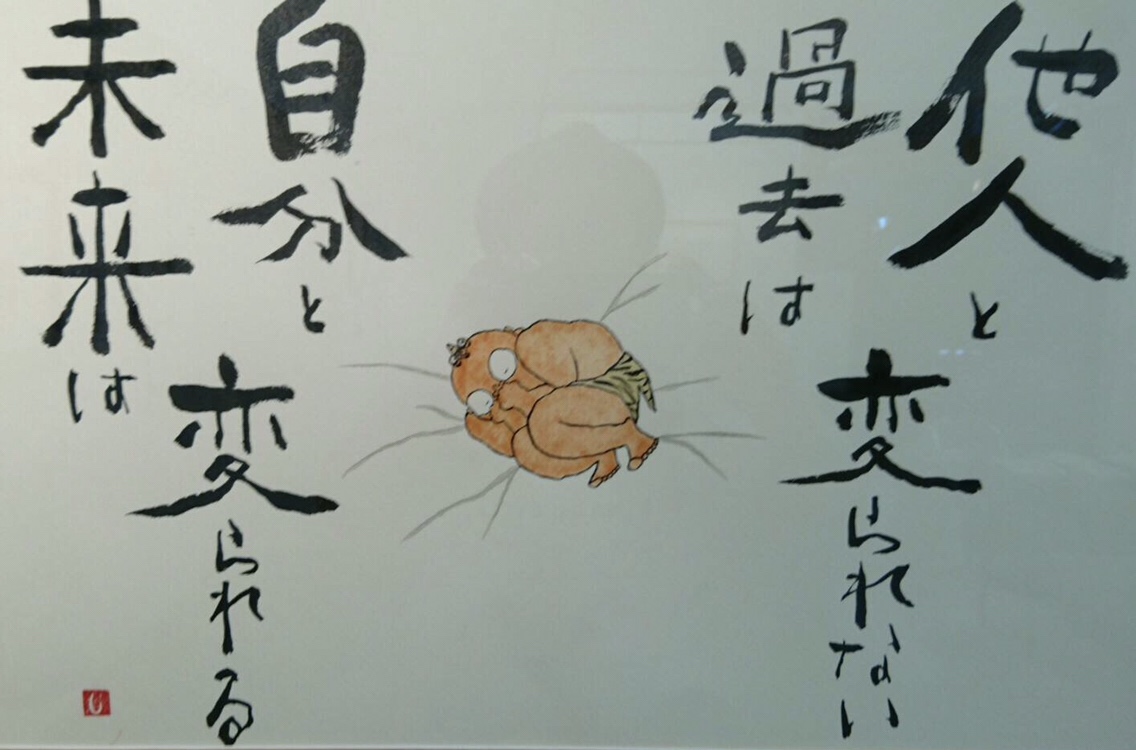 他人と
過去は
変られない
自分と
未来は
変られる